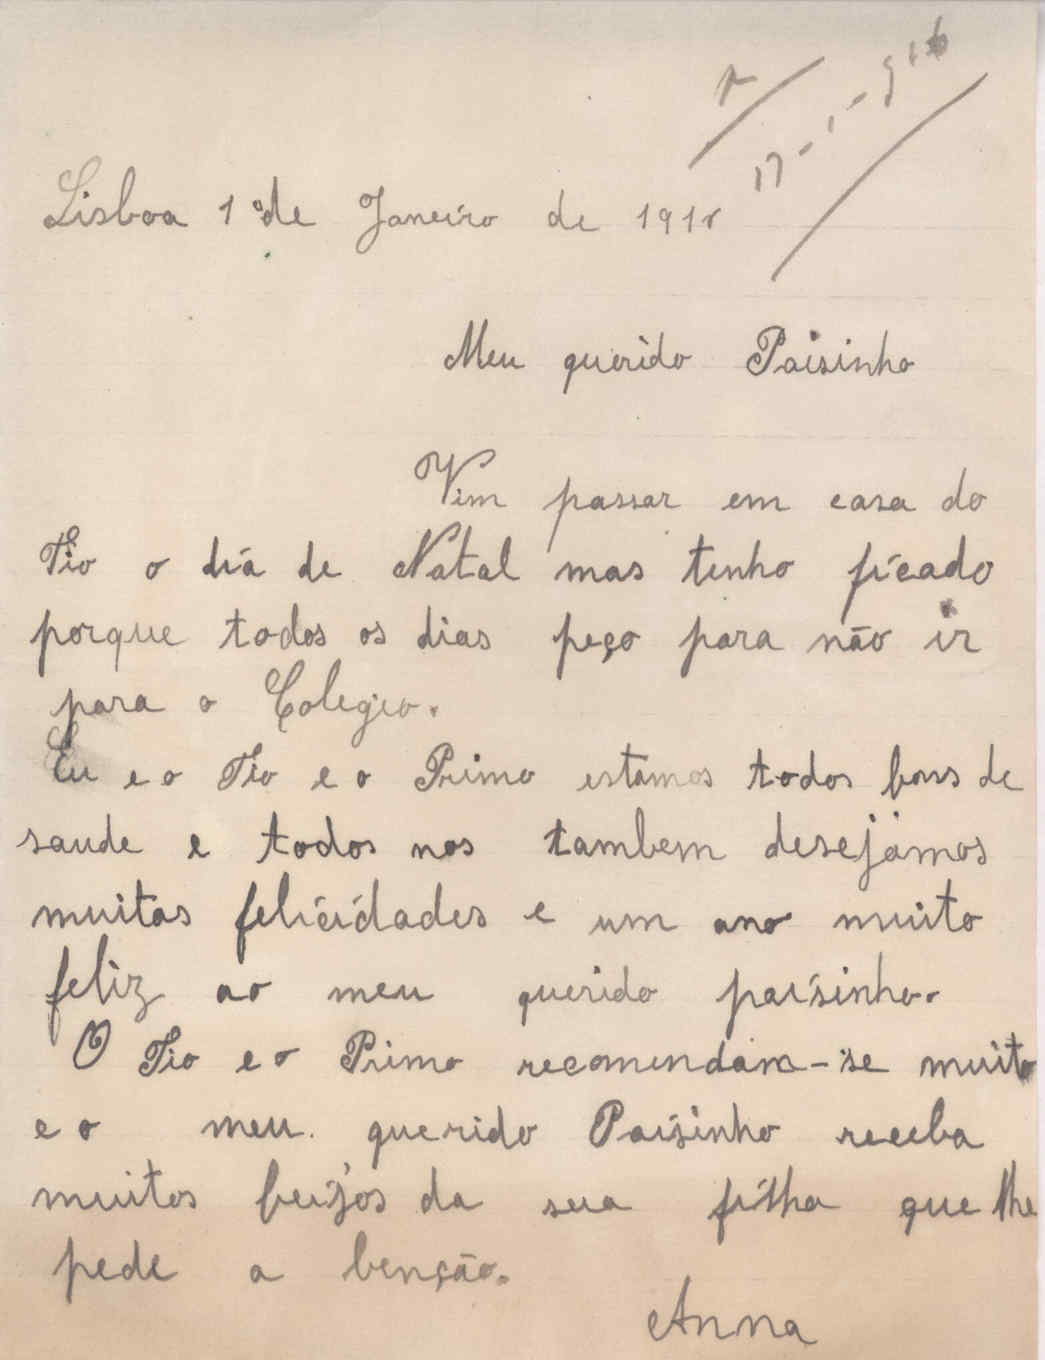 R
17-1-916
Lisboa 1º de Janeiro de 1916
Meu querido Paisinho
Vim passar em casa do
Tio o dia de Natal mas tenho ficado
porque todos os dias peço para não ir
para o Colegio.
Eu e o Tio e o Primo estamos todos bons de
saude e todos nos tambem desejamos
muitas felicidades e um ano muito
feliz ao meu querido paisinho.
O Tio e o Primo recomendam-se muito
e o meu querido Paisinho receba
muitos beijos da sua filha que lhe
pede a benção.
Anna